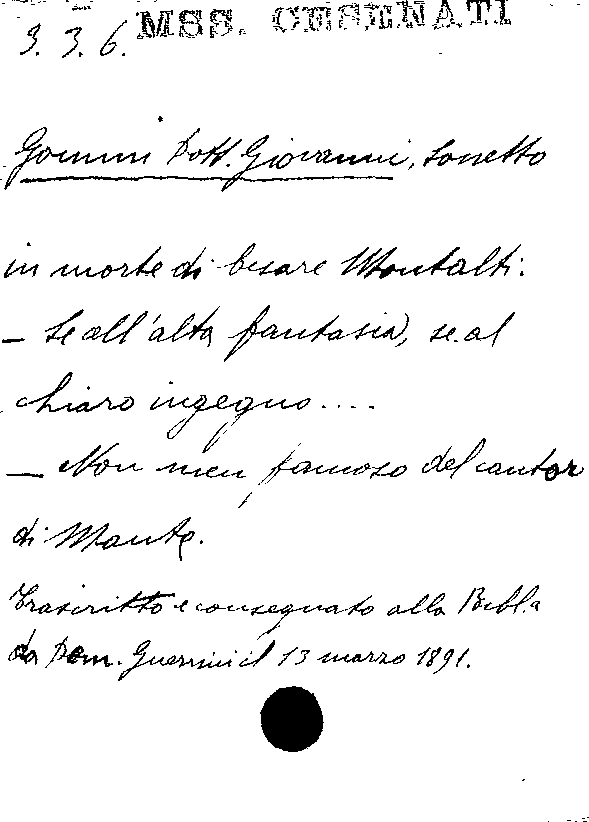 3. 3. 6. MSS. CESENATI
Gommi Dott. Giovanni, Sonetto
in morte di Cesare Montalti.
— Se all'alta fantasia, se al
chiaro ingegno....
— Non men famoso del cantor
di Manto.
Trascritto e consegnato alla Bibl.a
da Dom. Guerrini il 13 marzo 1891.